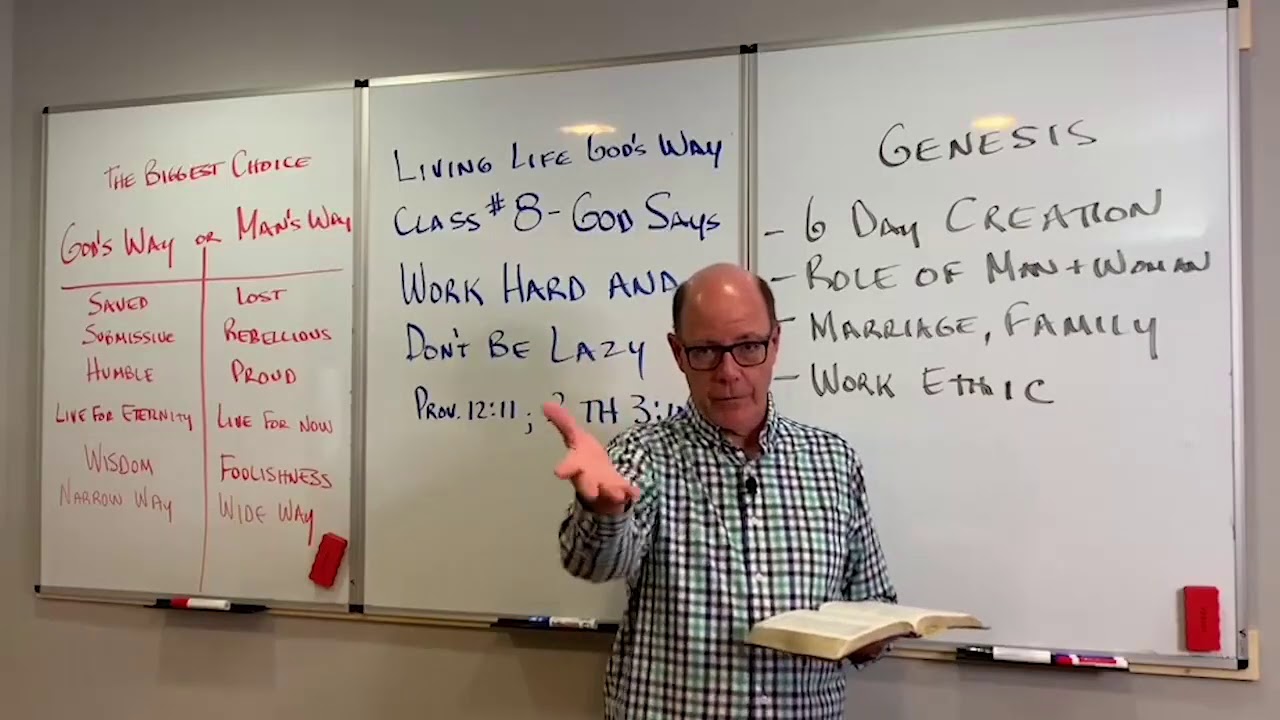 THE BIGGEST CHOICE
GOD'S WAY OR MAN'S WAY
SAVED LOST
SUBMISSIVE REBELLIOUS
HUMBLE PROUD
LIVE FOR ETERNITY LIVE FOR NOW
WISDOM FOOLISHNESS
NARROW WAY WIDE WAY
LIVING LIFE GOD'S WAY
CLASS #8 - GOD SAYS
WORK HARD AND
DON'T BE LAZY
PROV. 12:11 ; 2 TH 3:1
GENESIS
- 6 DAY CREATION
- ROLE OF MAN + WOMAN
- MARRIAGE, FAMILY
- WORK ETHIC